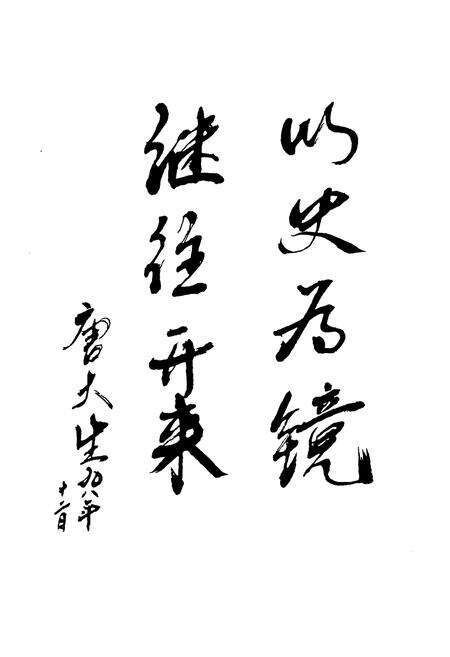 以史为镜
继往开来
唐大生九八年
十二月